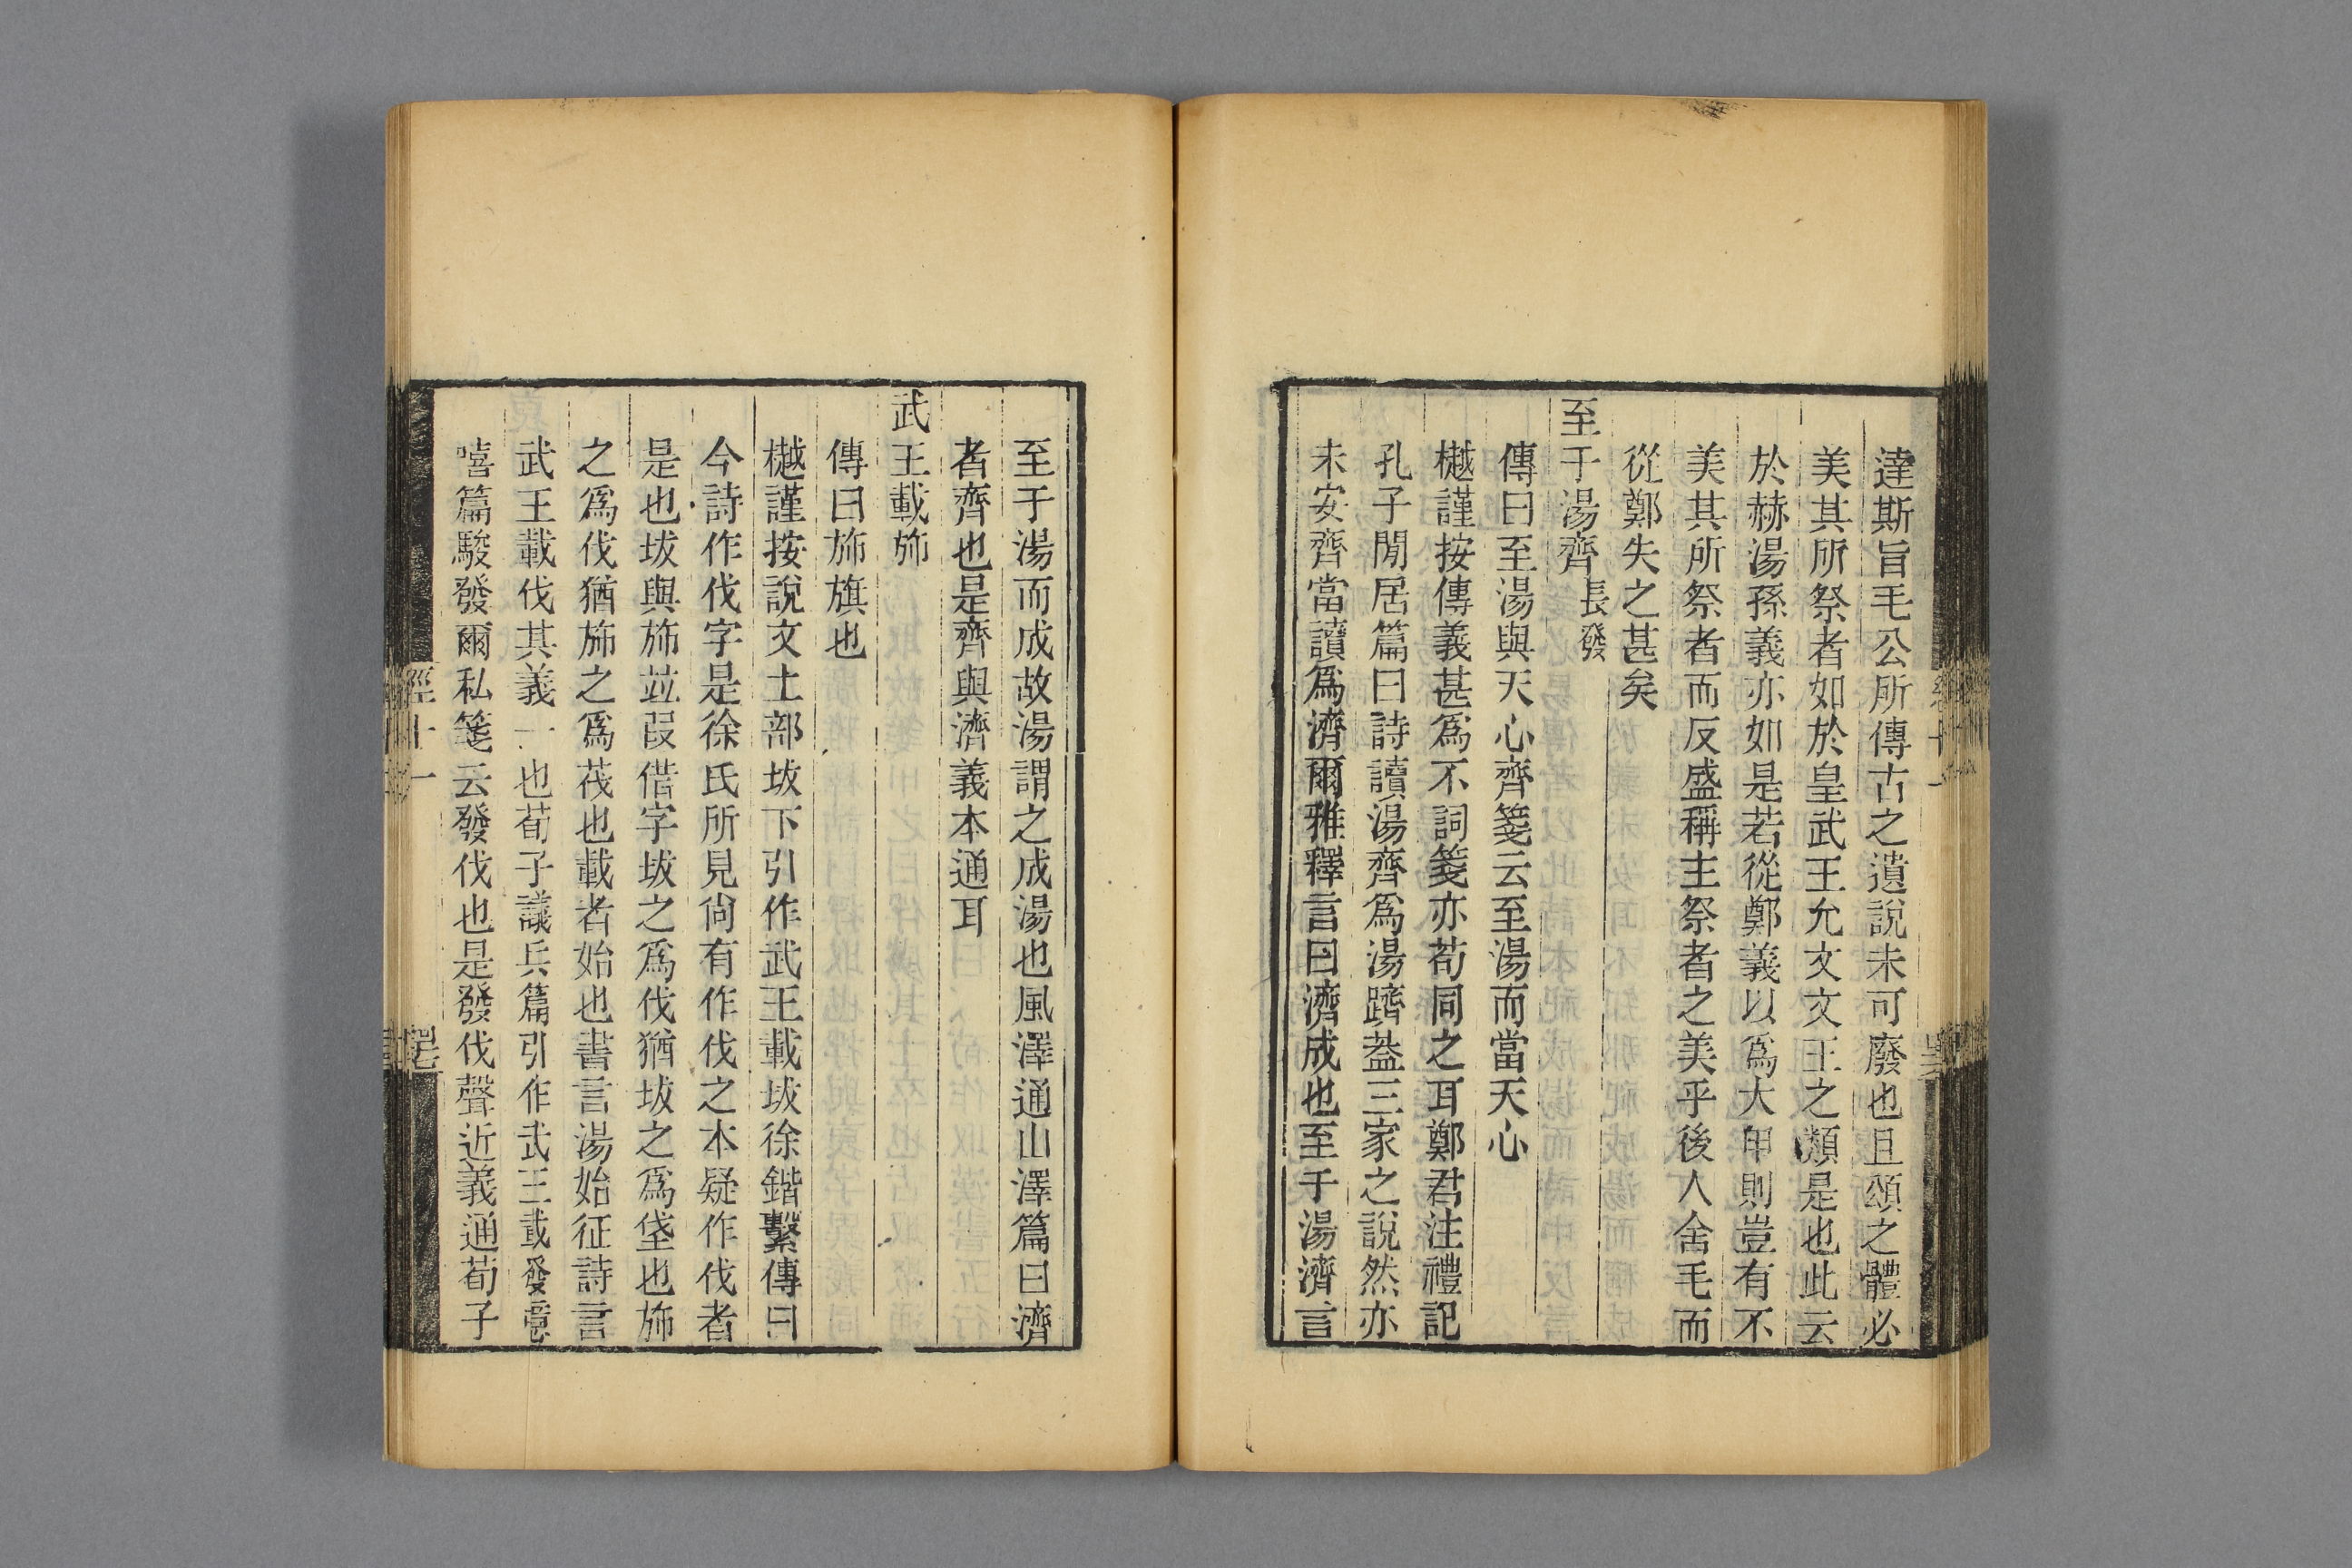 達斯旨毛公所傳古之遺說未可廢也且頌之體必
美其所祭者如於皇武王允文文王之類是也此云
於赫湯孫義亦如是若從鄭義以爲大甲則豈有不
美其所祭者而反盛稱主祭者之美乎後人舍毛而
從鄭失之甚矣
至于湯齊長發
傳曰至湯與天心齊箋云至湯而當天心
樾謹按傳義甚爲不詞箋亦苟同之耳鄭君注禮記
孔子閒居篇曰詩讀湯齊爲湯躋葢三家之說然亦
未安齊當讀爲濟爾雅釋言曰濟成也至于湯濟言
至于湯而成故湯謂之成湯也風澤通山澤篇曰濟
者齊也是齊與濟義本通耳
武王載斾
傳曰斾旗也
樾謹按說文土部坺下引作武王載坺徐鍇繫傳曰
今詩作伐字是徐氏所見尙有作伐之本疑作伐者
是也坺與斾竝叚借字坺之爲伐猶坺之爲垡也斾
之爲伐猶斾之爲茷也載者始也書言湯始征詩言
武王載伐其義一也荀子議兵篇引作武王載發噫
嘻篇駿發爾私箋云發伐也是發伐聲近義通荀子
經十一